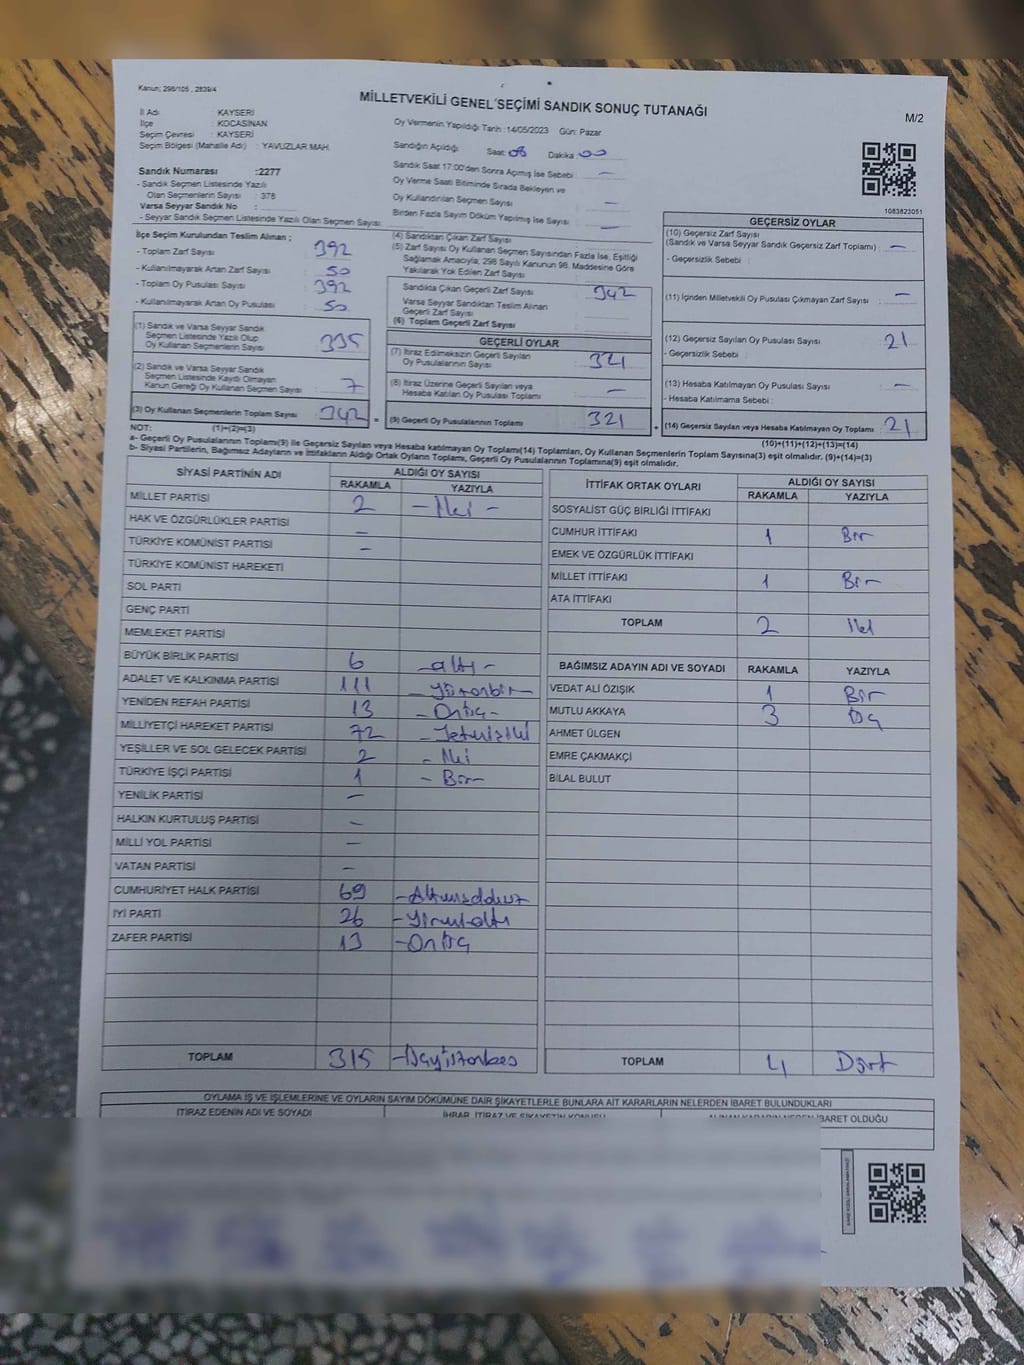 Kanun; 298/105 , 2839/4
MİLLETVEKİLİ GENEL SEÇİMİ SANDIK SONUÇ TUTANAĞI
M/2
İl Adı : KAYSERİ
İlçe : KOCASİNAN
Seçim Çevresi : KAYSERİ
Seçim Bölgesi (Mahalle Adı) : YAVUZLAR MAH.
Sandık Numarası :2277
- Sandık Seçmen Listesinde Yazılı
Olan Seçmenlerin Sayısı : 378
Varsa Seyyar Sandık No :
- Seyyar Sandık Seçmen Listesinde Yazılı Olan Seçmen Sayısı
Oy Vermenin Yapıldığı Tarih :14/05/2023 Gün: Pazar
Sandığın Açıldığı Saat: 08 Dakika : 00
Sandık Saat 17:00'den Sonra Açımış İse Sebebi : —
Oy Verme Saati Bitiminde Sırada Bekleyen ve
Oy Kullandırılan Seçmen Sayısı : —
Birden Fazla Sayım Döküm Yapılmış İse Sayısı : —
1083823051
İlçe Seçim Kurulundan Teslim Alınan ;
- Toplam Zarf Sayısı : 392
- Kullanılmayarak Artan Zarf Sayısı : 50
- Toplam Oy Pusulası Sayısı : 392
- Kullanılmayarak Artan Oy Pusulası : 50
(1) Sandık ve Varsa Seyyar Sandık
Seçmen Listesinde Yazılı Olup
Oy Kullanan Seçmenlerin Sayısı : 335
(2) Sandık ve Varsa Seyyar Sandık
Seçmen Listesinde Kaydı Olmayan
Kanun Gereği Oy Kullanan Seçmen Sayısı : 7
(3) Oy Kullanan Seçmenlerin Toplam Sayısı : 342
(4) Sandıktan Çıkan Zarf Sayısı
(5) Zarf Sayısı Oy Kullanan Seçmen Sayısından Fazla İse, Eşitliği
Sağlamak Amacıyla, 298 Sayılı Kanunun 98. Maddesine Göre
Yakılarak Yok Edilen Zarf Sayısı
Sandıkta Çıkan Geçerli Zarf Sayısı : 342
Varsa Seyyar Sandıktan Teslim Alınan
Geçerli Zarf Sayısı :
(6) Toplam Geçerli Zarf Sayısı :
GEÇERLİ OYLAR
(7) İtiraz Edilmeksizin Geçerli Sayılan
Oy Pusulalarının Sayısı : 321
(8) İtiraz Üzerine Geçerli Sayılan veya
Hesaba Katılan Oy Pusulası Toplamı : —
(9) Geçerli Oy Pusulalarının Toplamı : 321
GEÇERSİZ OYLAR
(10) Geçersiz Zarf Sayısı
(Sandık ve Varsa Seyyar Sandık Geçersiz Zarf Toplamı) : —
- Geçersizlik Sebebi :
(11) İçinden Milletvekili Oy Pusulası Çıkmayan Zarf Sayısı : —
(12) Geçersiz Sayılan Oy Pusulası Sayısı : 21
- Geçersizlik Sebebi :
(13) Hesaba Katılmayan Oy Pusulası Sayısı : —
- Hesaba Katılmama Sebebi :
(14) Geçersiz Sayılan veya Hesaba Katılmayan Oy Toplamı : 21
NOT: (1)+(2)=(3)
(10)+(11)+(12)+(13)=(14)
a- Geçerli Oy Pusulalarının Toplamı(9) ile Geçersiz Sayılan veya Hesaba katılmayan Oy Toplamı(14) Toplamları, Oy Kullanan Seçmenlerin Toplam Sayısına(3) eşit olmalıdır. (9)+(14)=(3)
b- Siyasi Partilerin, Bağımsız Adayların ve İttifakların Aldığı Ortak Oyların Toplamı, Geçerli Oy Pusulalarının Toplamına(9) eşit olmalıdır.
SİYASİ PARTİNİN ADI ALDIĞI OY SAYISI
RAKAMLA YAZIYLA
MİLLET PARTİSİ 2 – İki –
HAK VE ÖZGÜRLÜKLER PARTİSİ —
TÜRKİYE KOMÜNİST PARTİSİ —
TÜRKİYE KOMÜNİST HAREKETİ
SOL PARTİ
GENÇ PARTİ
MEMLEKET PARTİSİ
BÜYÜK BİRLİK PARTİSİ 6 – altı –
ADALET VE KALKINMA PARTİSİ 111 – Yüzonbir –
YENİDEN REFAH PARTİSİ 13 – Onüç –
MİLLİYETÇİ HAREKET PARTİSİ 72 – Yetmişiki
YEŞİLLER VE SOL GELECEK PARTİSİ 2 – İki
TÜRKİYE İŞÇİ PARTİSİ 1 – Bir –
YENİLİK PARTİSİ —
HALKIN KURTULUŞ PARTİSİ —
MİLLİ YOL PARTİSİ —
VATAN PARTİSİ —
CUMHURİYET HALK PARTİSİ 69 – Altmışdokuz
İYİ PARTİ 26 – Yirmialtı
ZAFER PARTİSİ 13 – Onüç
TOPLAM 315 – Üçyüzonbeş
İTTİFAK ORTAK OYLARI ALDIĞI OY SAYISI
RAKAMLA YAZIYLA
SOSYALİST GÜÇ BİRLİĞİ İTTİFAKI
CUMHUR İTTİFAKI 1 Bir
EMEK VE ÖZGÜRLÜK İTTİFAKI
MİLLET İTTİFAKI 1 Bir
ATA İTTİFAKI
TOPLAM 2 İki
BAĞIMSIZ ADAYIN ADI VE SOYADI RAKAMLA YAZIYLA
VEDAT ALİ ÖZIŞIK 1 Bir
MUTLU AKKAYA 3 Üç
AHMET ÜLGEN
EMRE ÇAKMAKÇİ
BİLAL BULUT
TOPLAM 4 Dört
OYLAMA İŞ VE İŞLEMLERİNE VE OYLARIN SAYIM DÖKÜMÜNE DAİR ŞİKAYETLERLE BUNLARA AİT KARARLARIN NELERDEN İBARET BULUNDUKLARI
İTİRAZ EDENİN ADI VE SOYADI İHBAR, İTİRAZ VE ŞİKAYETİN KONUSU ALINAN KARARIN NEDEN İBARET OLDUĞU